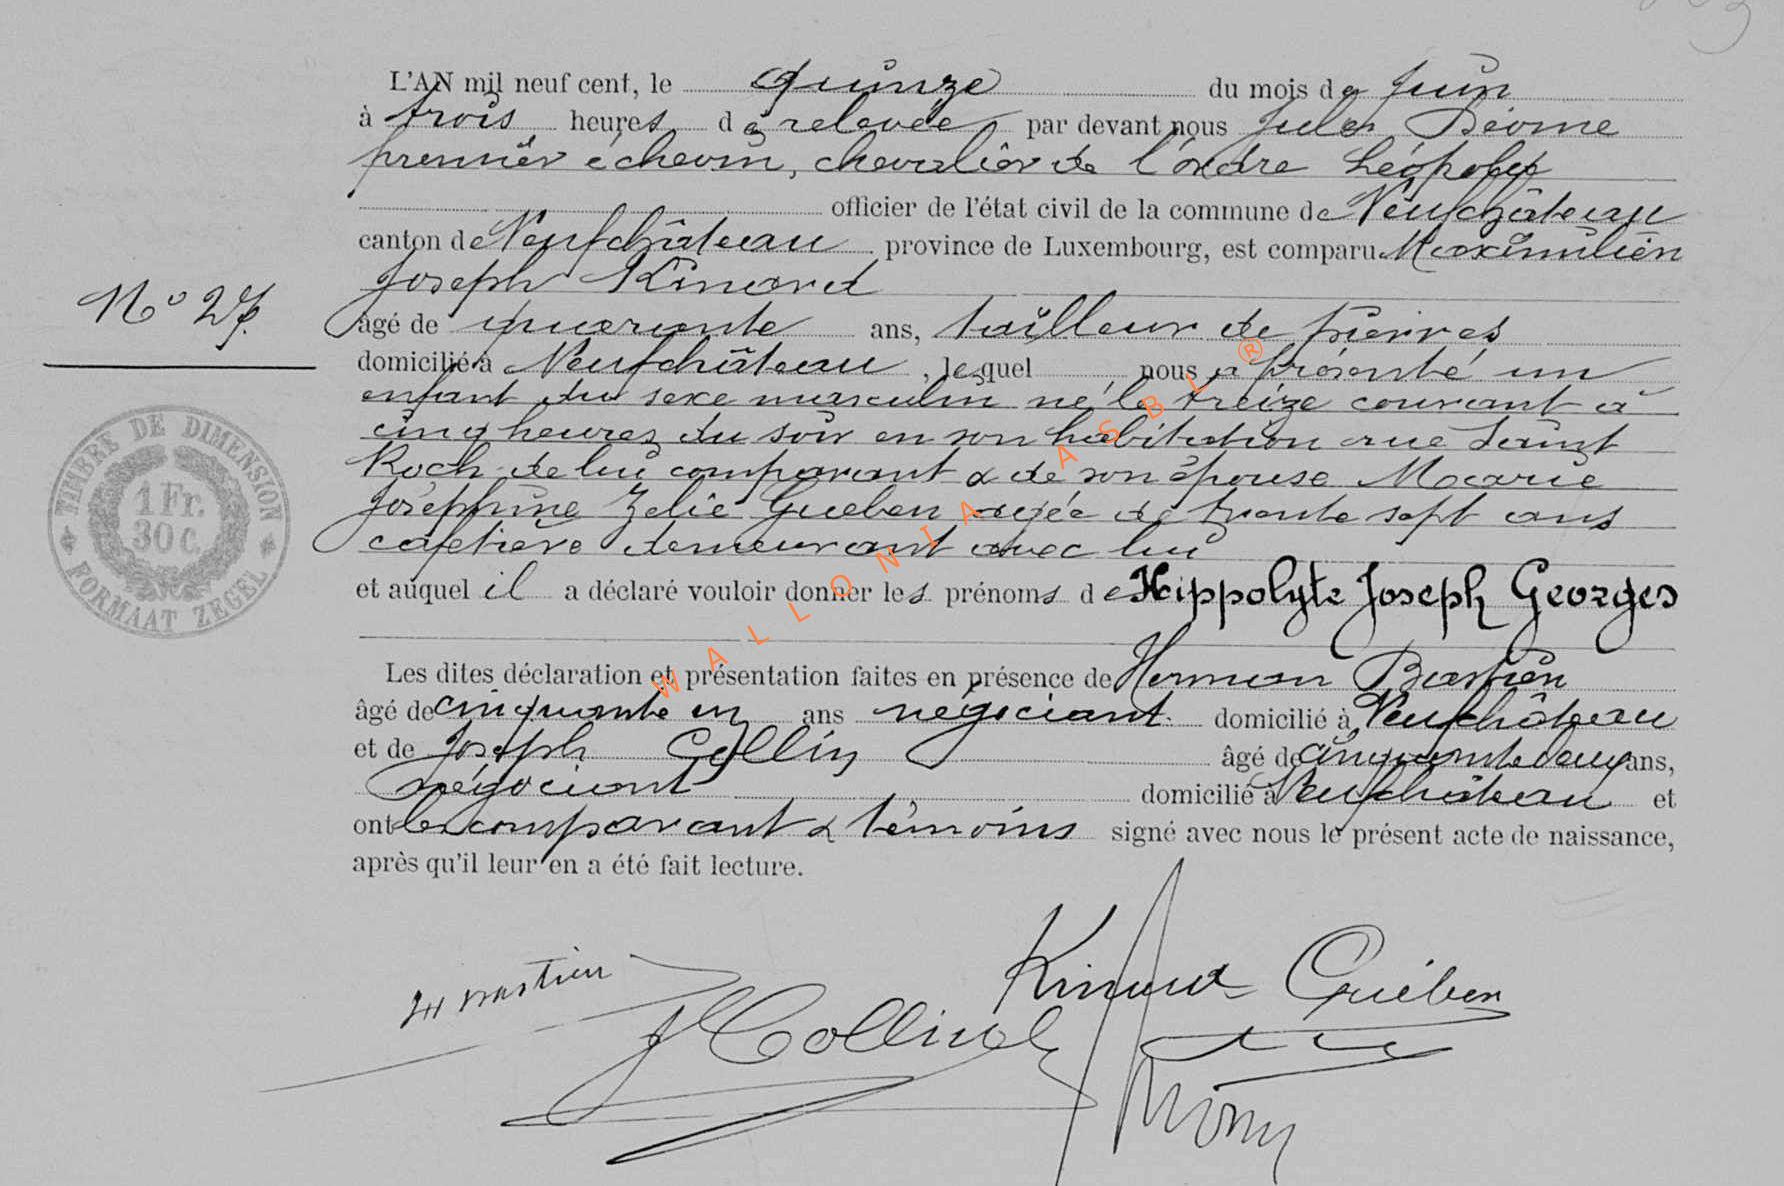 L'AN mil neuf cent, le quinze du mois de Juin
à trois heures de relevée par devant nous Jules
premier échevin, chevalier de l'ordre Léopold
officier de l'état civil de la commune de Neufchâteau
canton de Neufchâteau province de Luxembourg, est comparu Maximilien
Joseph Kinard
N° 27.
âgé de quarante ans, tailleur de pierres
domicilié à Neufchâteau, lequel nous a présenté un
enfant du sexe masculin né le treize courant à
cinq heures du soir en son habitation rue Saint
Roch de lui comparant & de son épouse Marie
Joséphine Zelie Gueben agée de trente sept ans
cafetière demeurant avec lui
TIMBRE DE DIMENSION
1 Fr.
30 C.
FORMAAT ZEGEL
et auquel il a déclaré vouloir donner les prénoms de Hippolyte Joseph Georges
Les dites déclaration et présentation faites en présence de Herman Bastien
âgé de cinquante un ans négociant domicilié à Neufchâteau
et de Joseph Collin âgé de cinquante deux ans,
négociant domicilié à Neufchâteau et
ont les comparant & témoins signé avec nous le présent acte de naissance,
après qu'il leur en a été fait lecture.
WALLONIA ASBL ®
Kinard Guében
H Bastien
J Collin